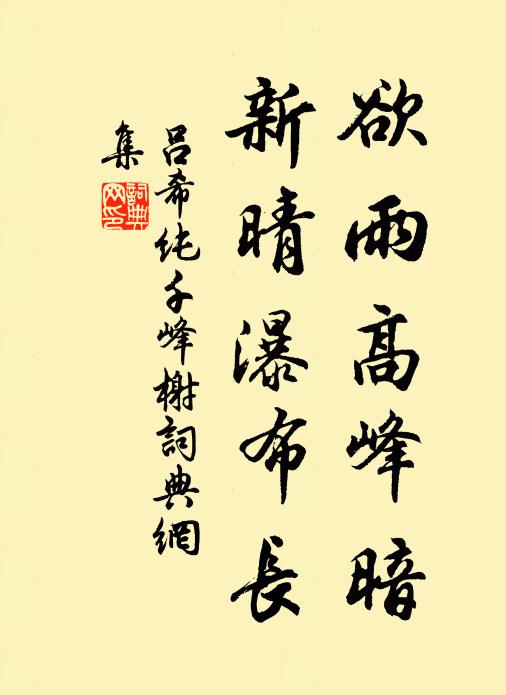 欲雨高峰暗
新晴瀑布長
呂希純千峰榭詞典網
集
詞典網印